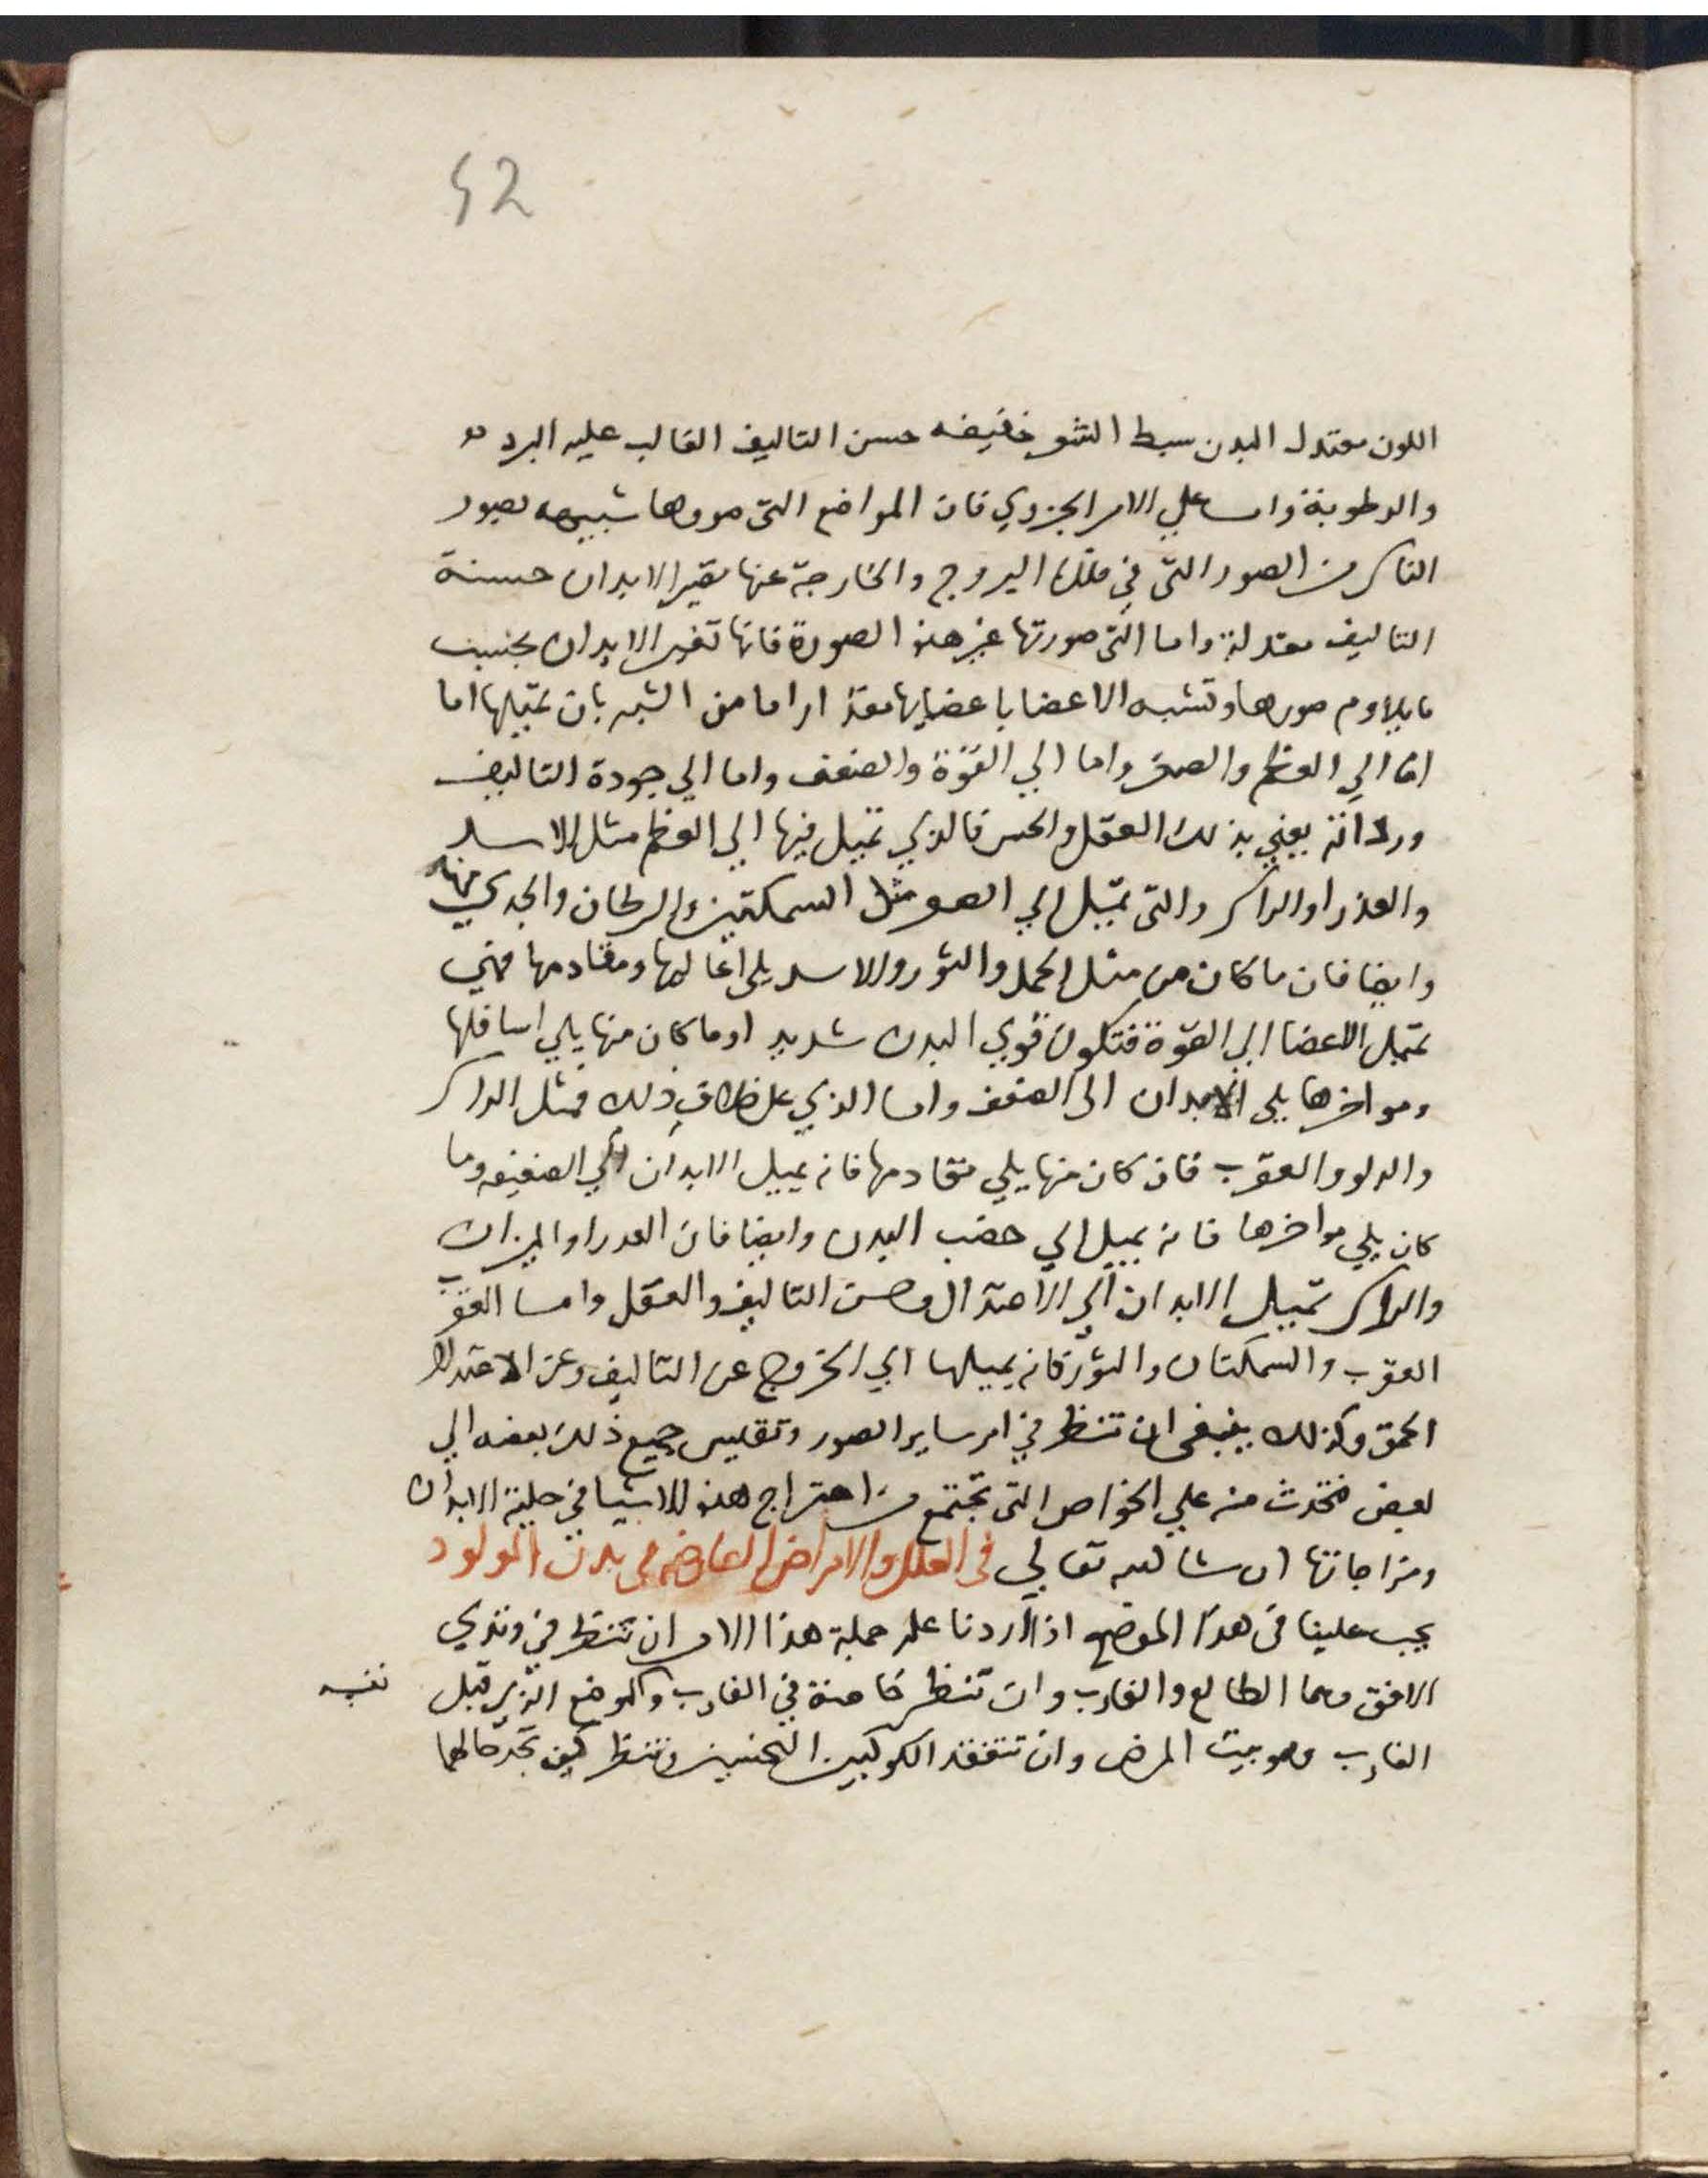 52
اللون معتدل البدن سبط الشعر خفيفه حسن التاليف الغالب عليه البرد
والرطوبة واما علي الامر الجزوي فان المواضع التي صورها شبيهه بصور
الناس من الصور التي في فلك البروج والخارجة عنها تصير الابدان حسنة
التاليف معتدلة واما التي صورتها غير هذه الصورة فانها تغير الابدان بحسب
ما يلاوم صورها وتشبه الاعضا باعضايها مقدارا ما من الشبه بان تميلها اما
اما الي العظم والصغر واما الي القوة والضعف واما الي جودة التاليف
ورداته يعني بذلك العقل والحس فالذي تميل فيها الي العظم مثل الاسد
والعذرا والرامي والتي تميل الي الصغر مثل السمكتين والسرطان والجدي
وايضا فان ما كان من مثل الحمل والثور والاسد يلي اعاليها ومقادمها فهي
تميل الاعضا الي القوة فتكون قوي البدن شديد اوما كان منها يلي اسافلها
ومواخرها يلي الابدان الى الضعف واما الذي على خلاف ذلك فمثل الرامي
والدلو والعقرب فان كان منها يلي مقادمها فانه يميل الابدان الي الضعيفه وما
كان يلي مواخرها فانه يميل الي خصب البدن وايضا فان العدرا والميزان
والرامي تميل الابدان الي الاعتدال وحسن التاليف والعقل واما العقرب
العقرب والسمكتان والثور فانه يميلها الي الخروج عن التاليف وعن الاعتدال
الحمق وكذلك ينبغى ان تنظر في امر ساير الصور وتقيس جميع ذلك بعضه الي
بعض فتحدث منه علي الخواص التي تجتمع من امتزاج هذه الاشيا في حلية الابدان
ومزاجاتها ان شا الله تعالي في العلل والامراض العارضه في بدن المولود
يجب علينا فى هذا الموضع اذا اردنا علم جملة هذا الامر ان ننظر في وتدي
الافق وهما الطالع والغارب وان ننظر خاصة في الغارب والموضع الذي قبل
الغارب وهو بيت المرض وان نتفقد الكوكبين النحسين وننظر كيف تجد حالهما